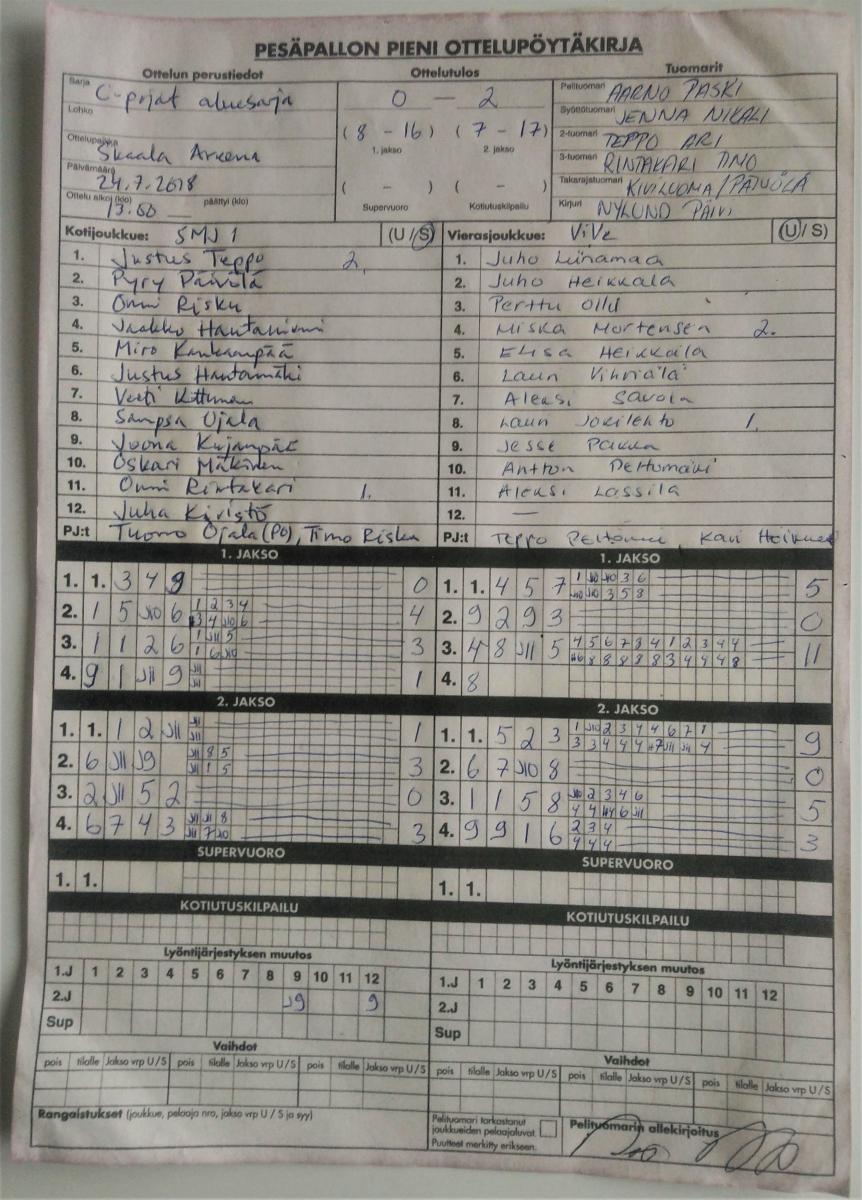 PESÄPALLON PIENI OTTELUPÖYTÄKIRJA
Ottelun perustiedot Ottelutulos Tuomarit
Sarja C-pojat aluesarja
Lohko
Ottelupaikka Skaala Areena
Päivämäärä 24.7.2018
Ottelu alkoi (klo) 13.00 päättyi (klo)
0 - 2
(8 - 16) (7 - 17)
1. jakso 2. jakso
( - ) ( - )
Supervuoro Kotiutuskilpailu
Pelituomari AARNO PASKI
Syöttötuomari JENNA NIKALI
2-tuomari TEPPO ARI
3-tuomari RINTAKARI TIMO
Takarajatuomari KIVILUOMA/
Kirjuri NYLUND PÄIVI
Kotijoukkue: SMJ 1 (U/S)
1. Justus Teppo 2.
2. Pyry Päivölä
3. Onni Risku
4. Jaakko
5. Miro Kankaanpää
6. Justus Hautamäki
7. Veeti
8. Sampsa Ojala
9. Joona Kujanpää
10. Oskari Mäkinen
11. Onni Rintakari 1.
12. Juha Kivistö
PJ:t Tuomo Ojala (PO), Timo Risku
Vierasjoukkue: ViVe (U/S)
1. Juho Liinamaa
2. Juho Heikkala
3. Perttu Ollil
4. Miska Mortensen 2.
5. Elisa Heikkala
6. Lauri Vihriälä
7. Aleksi Savola
8. Lauri Jokilehto 1.
9. Jesse
10. Antton
11. Aleksi Lassila
12. —
PJ:t Teppo Kari
1. JAKSO
1. 1. 3 4 9 0
2. 1 5 J10 6 1 2 3 4 4
3. 1 1 2 6 1 J11 5 3
1 6 J10
4. 9 1 J11 9 J11 1
J11
2. JAKSO
1. 1. 1 2 J11 J11 1
J11
2. 6 J11 J9 J11 8 5 3
J11 1 5
3. 2 J11 5 2 0
4. 6 7 4 3 J11 J11 8 3
SUPERVUORO
1. 1.
KOTIUTUSKILPAILU
1. JAKSO
1. 1. 4 5 7 1 J10 J10 3 6 5
J10 J10 3 5 8
2. 9 2 9 3 0
3. 4 8 J11 5 4 5 6 7 8 4 1 2 3 4 4 11
4. 8
2. JAKSO
1. 1. 5 2 3 1 J10 2 3 4 4 6 7 1 9
2. 6 7 J10 8 0
3. 1 1 5 8 J10 2 3 4 6 5
4. 9 9 1 6 2 3 4 3
4 4 4
SUPERVUORO
1. 1.
KOTIUTUSKILPAILU
Lyöntijärjestyksen muutos
1.J 1 2 3 4 5 6 7 8 9 10 11 12
2.J J9 9
Sup
Vaihdot
pois tilalle Jakso vrp U/S pois tilalle Jakso vrp U/S pois tilalle Jakso vrp U/S
Rangaistukset (joukkue, pelaaja nro, jakso vrp U / S ja syy)
Lyöntijärjestyksen muutos
1.J 1 2 3 4 5 6 7 8 9 10 11 12
2.J
Sup
Vaihdot
pois tilalle Jakso vrp U/S pois tilalle Jakso vrp U/S pois tilalle Jakso vrp U/S
Pelituomari tarkastanut
joukkueiden pelaajaluvat.
Puutteet merkitty erikseen.
Pelituomarin allekirjoitus